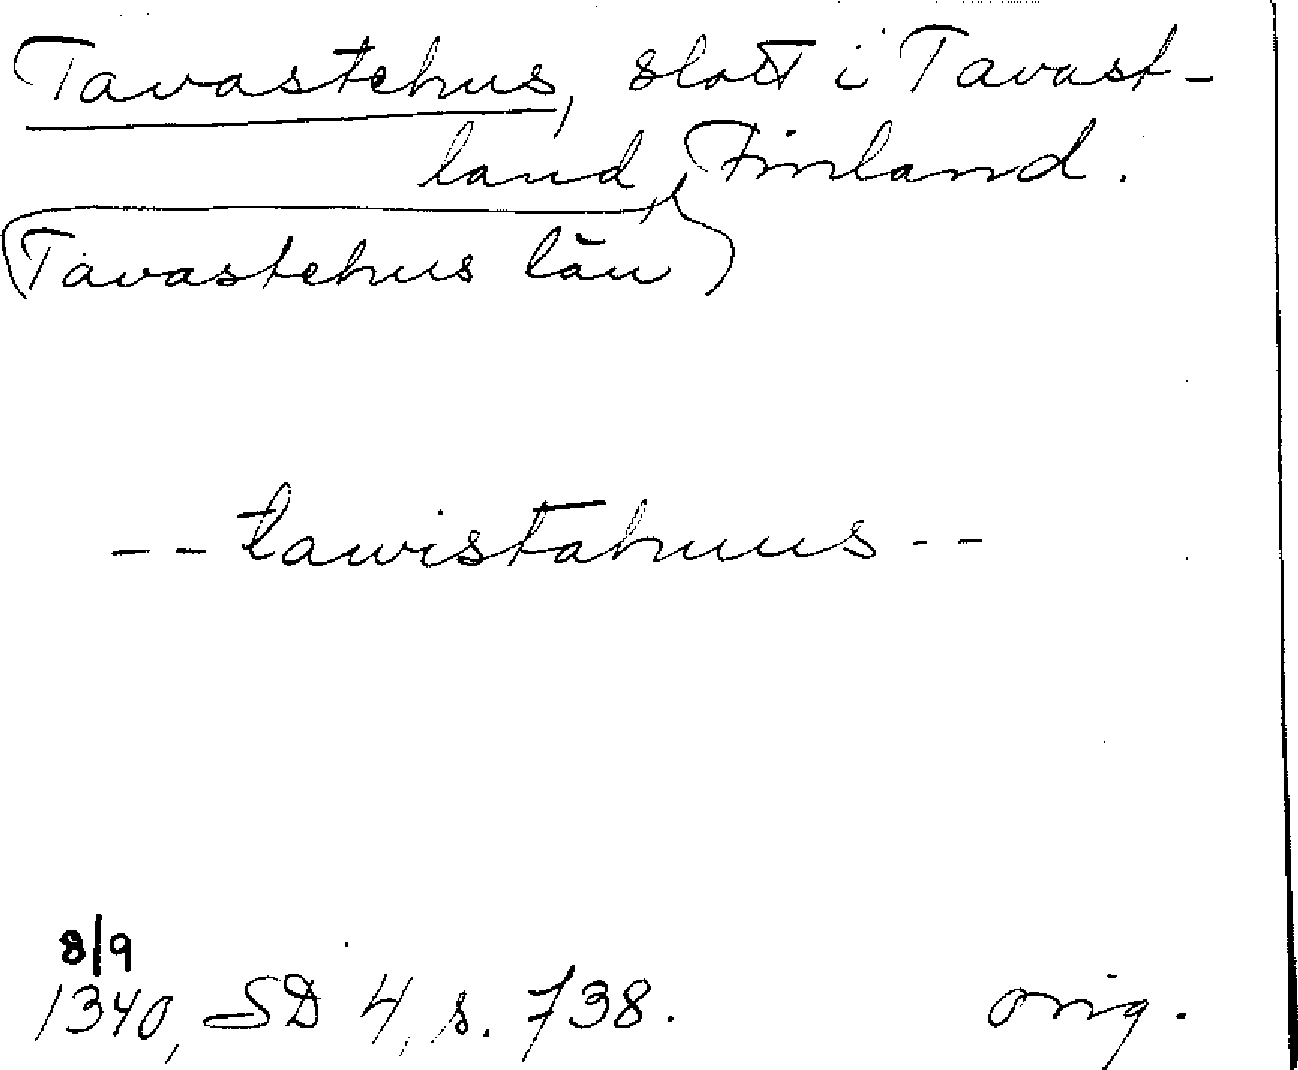 Tavastehus, slott i Tavast-
land, Finland.
(Tavastehus län)
-- tawistahuus --
8/9
1340, SD 4, s. 738. orig.